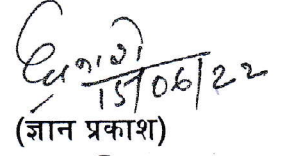 15/06/22
(ज्ञान प्रकाश)